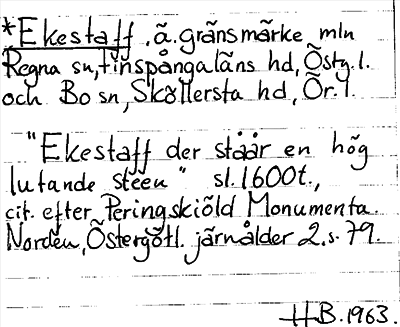 *Ekestaff. ä. gränsmärke mln
Regna sn, Finspångaläns hd, Östg. l.
och Bo sn, Sköllersta hd, Ör. l.
"Ekestaff der ståår en hög
lutande steen" sl. 1600t.,
cit. efter Peringskiöld Monumenta.
Norden, Östergötl. järnålder 2. s. 79.
HB. 1963.